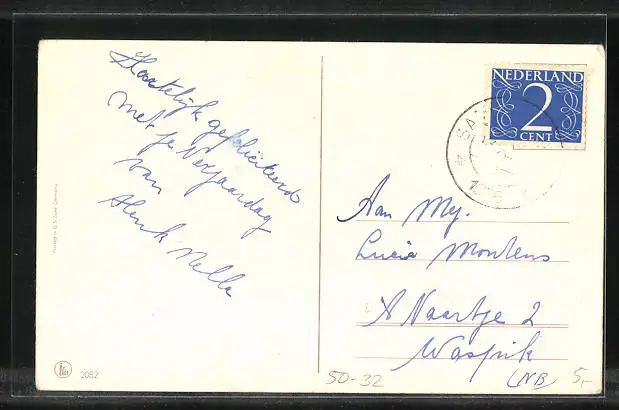 Hartelijk gefeliciteerd
met je Verjaardag
van
Henk Nella
NEDERLAND
2
CENT
Aan Mej.
Lucia Montens
't Vaartje 2
Waspik
50-32
(NB)
5,-
2082